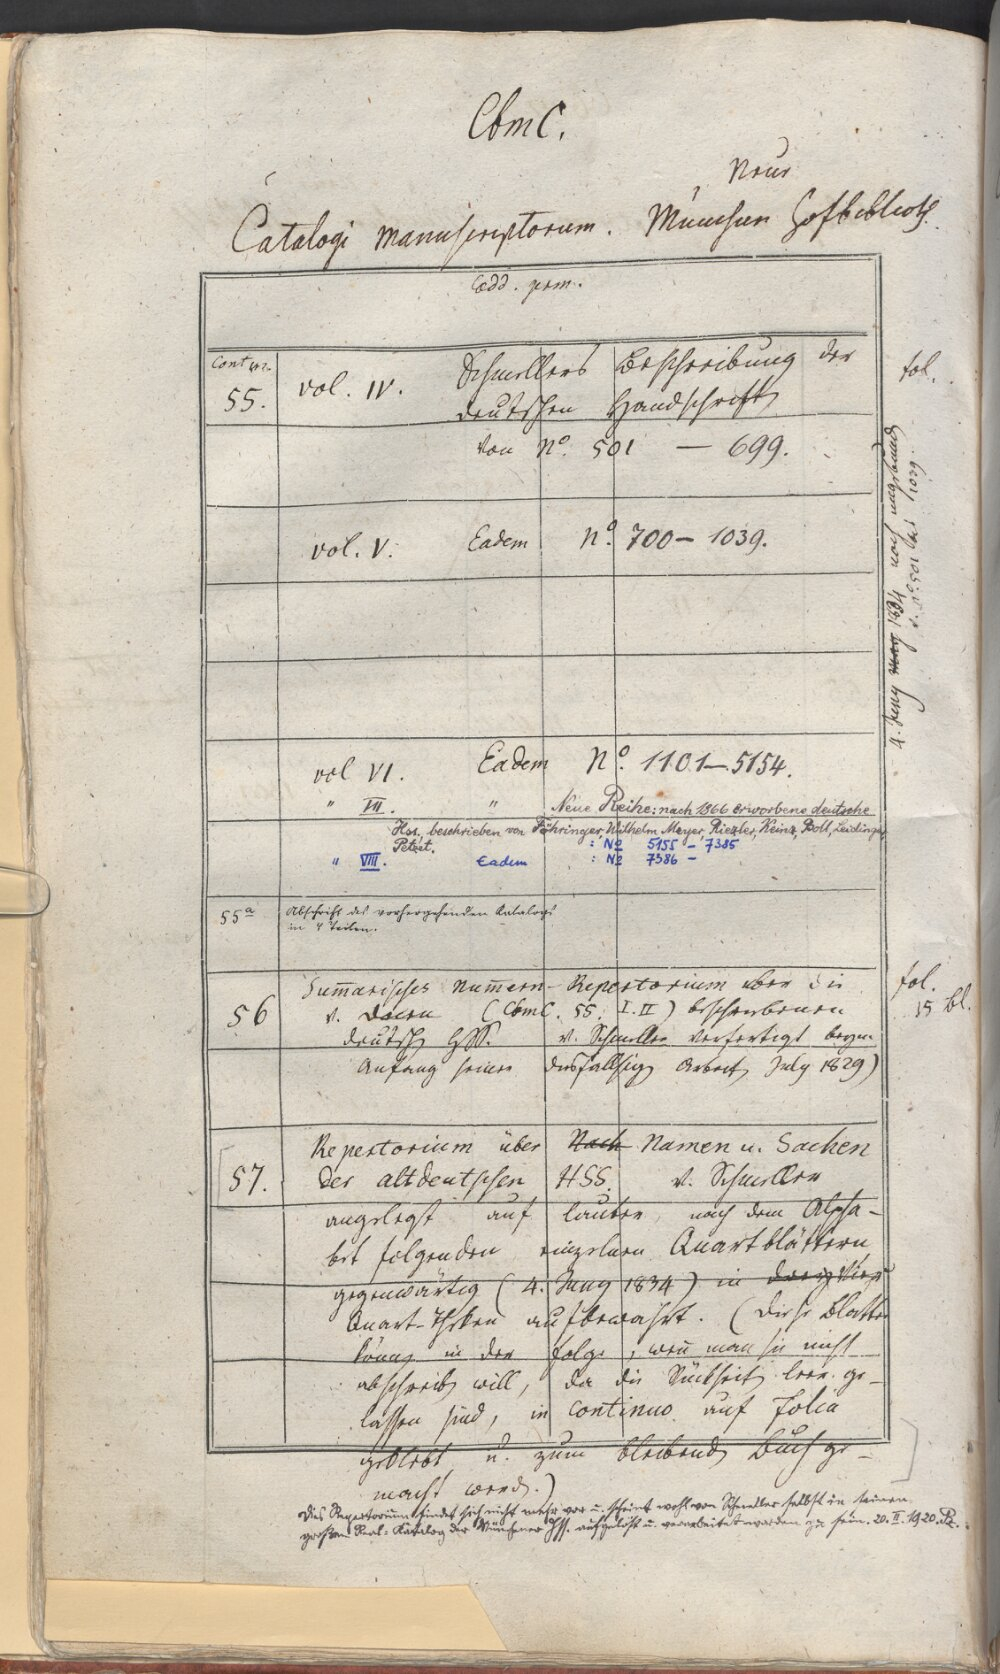 CbmC.
Neue
Catalogi manuscriptorum. München Hofbiblioth.
Codd. germ.
Cont nr.
55.
vol. IV.
Schmellers Beschreibung der
deutschen Handschrift
von No. 501 — 699.
fol.
vol. V.
Eadem No. 700 — 1039.
4. Juny may 1834 noch ungebund
v. No 501 bis 1039.
vol VI. Eadem No. 1101 — 5154.
" VII. " Neue Reihe: nach 1866 erworbene deutsche
Hss., beschrieben von Föhringer, Wilhelm Meyer, Riezler, Keinz, Boll, Leidinger,
Petzet. : No 5155 - 7385
" VIII. Eadem : No 7386 -
55a
Abschrift des vorhergehenden Katalogs
in 4 Teilen.
56
Summarisches Nummern-Repertorium über die
v. Docen (CbmC. 55. I. II) beschriebenen
deutsch HSS. v. Schmeller verfertigt beym
Anfang seiner desfallsig Arbeit July 1829)
fol.
15 bl.
57.
Repertorium über Nach Namen u. Sachen
der altdeutschen HSS. v. Schmeller
angelegt auf lauter, nach dem Alpha-
bet folgenden einzelnen Quartblättern,
gegenwärtig (4. Juny 1834) in drey Vier
Quart-Theken aufbewahrt. (Diese Blätter
könng in der Folge, wen man sie nicht
abschreib will, da die Rückseite leer ge-
lassen sind, in continuo auf Folia
geklebt u. zum bleibend Buch ge-
macht werd.)
Dies Repertorium findet sich nicht mehr vor u. scheint wohl von Schmeller selbst in seinen
großen Real-Katalog der Münchener Hss. aufgelöst u. verarbeitet worden zu sein. 20. II. 1920. Pt.